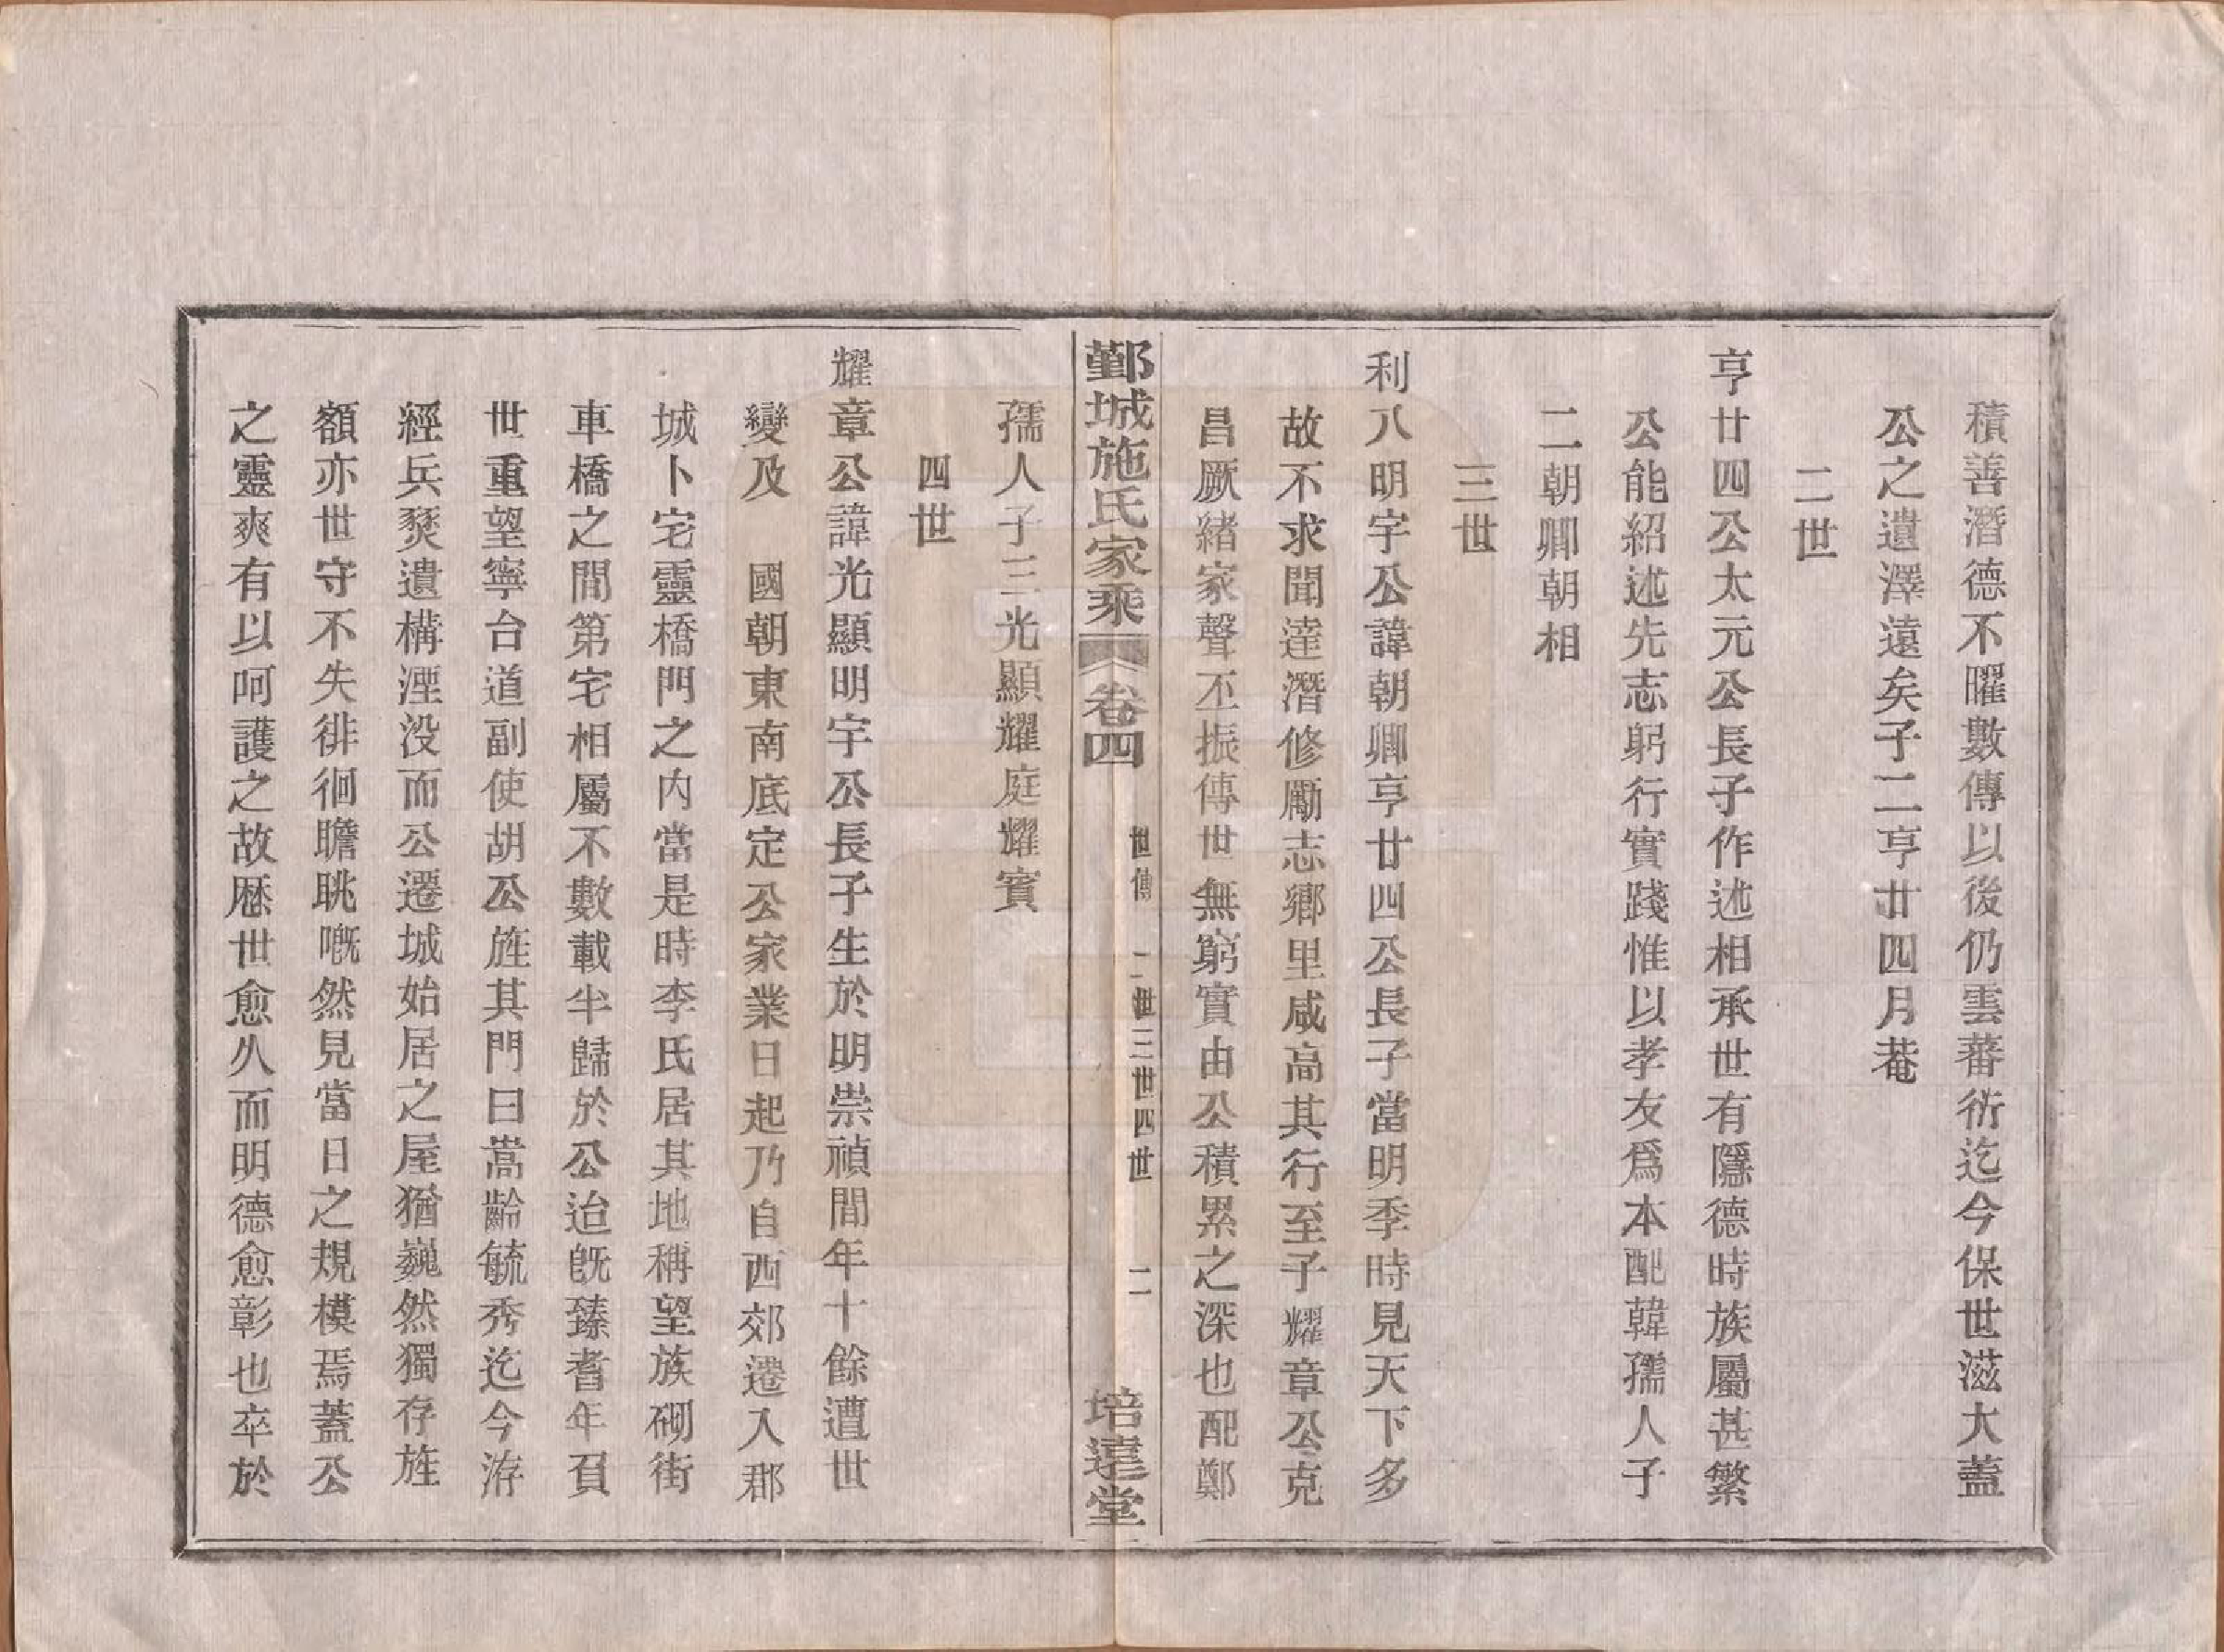 積善潛德不曜數傳以後仍雲蕃衍迄今保世滋大蓋
公之遺澤遠矣子二亨廿四月菴
二世
亨廿四公太元公長子作述相承世有隱德時族屬甚繁
公能紹述先志躬行實踐惟以孝友爲本配韓孺人子
二朝卿朝相
三世
利八明宇公諱朝卿亨廿四公長子當明季時見天下多
故不求聞達潛修勵志鄉里咸高其行至子耀章公克
昌厥緒家聲丕振傳世無窮實由公積累之深也配鄭
鄞城施氏家乘
卷四
世傳 二世三世四世
二
培遠堂
孺人子三光顯耀庭耀賓
四世
耀章公諱光顯明宇公長子生於明崇禎間年十餘遭世
變及 國朝東南底定公家業日起乃自西郊遷入郡
城卜宅靈橋門之內當是時李氏居其地稱望族砌街
車橋之間第宅相屬不數載半歸於公迨旣臻耆年負
世重望寧台道副使胡公旌其門曰嵩齡毓秀迄今洊
經兵燹遺構湮没而公遷城始居之屋猶巍然獨存旌
額亦世守不失徘徊瞻眺嘅然見當日之規模焉蓋公
之靈爽有以呵護之故歷世愈久而明德愈彰也卒於